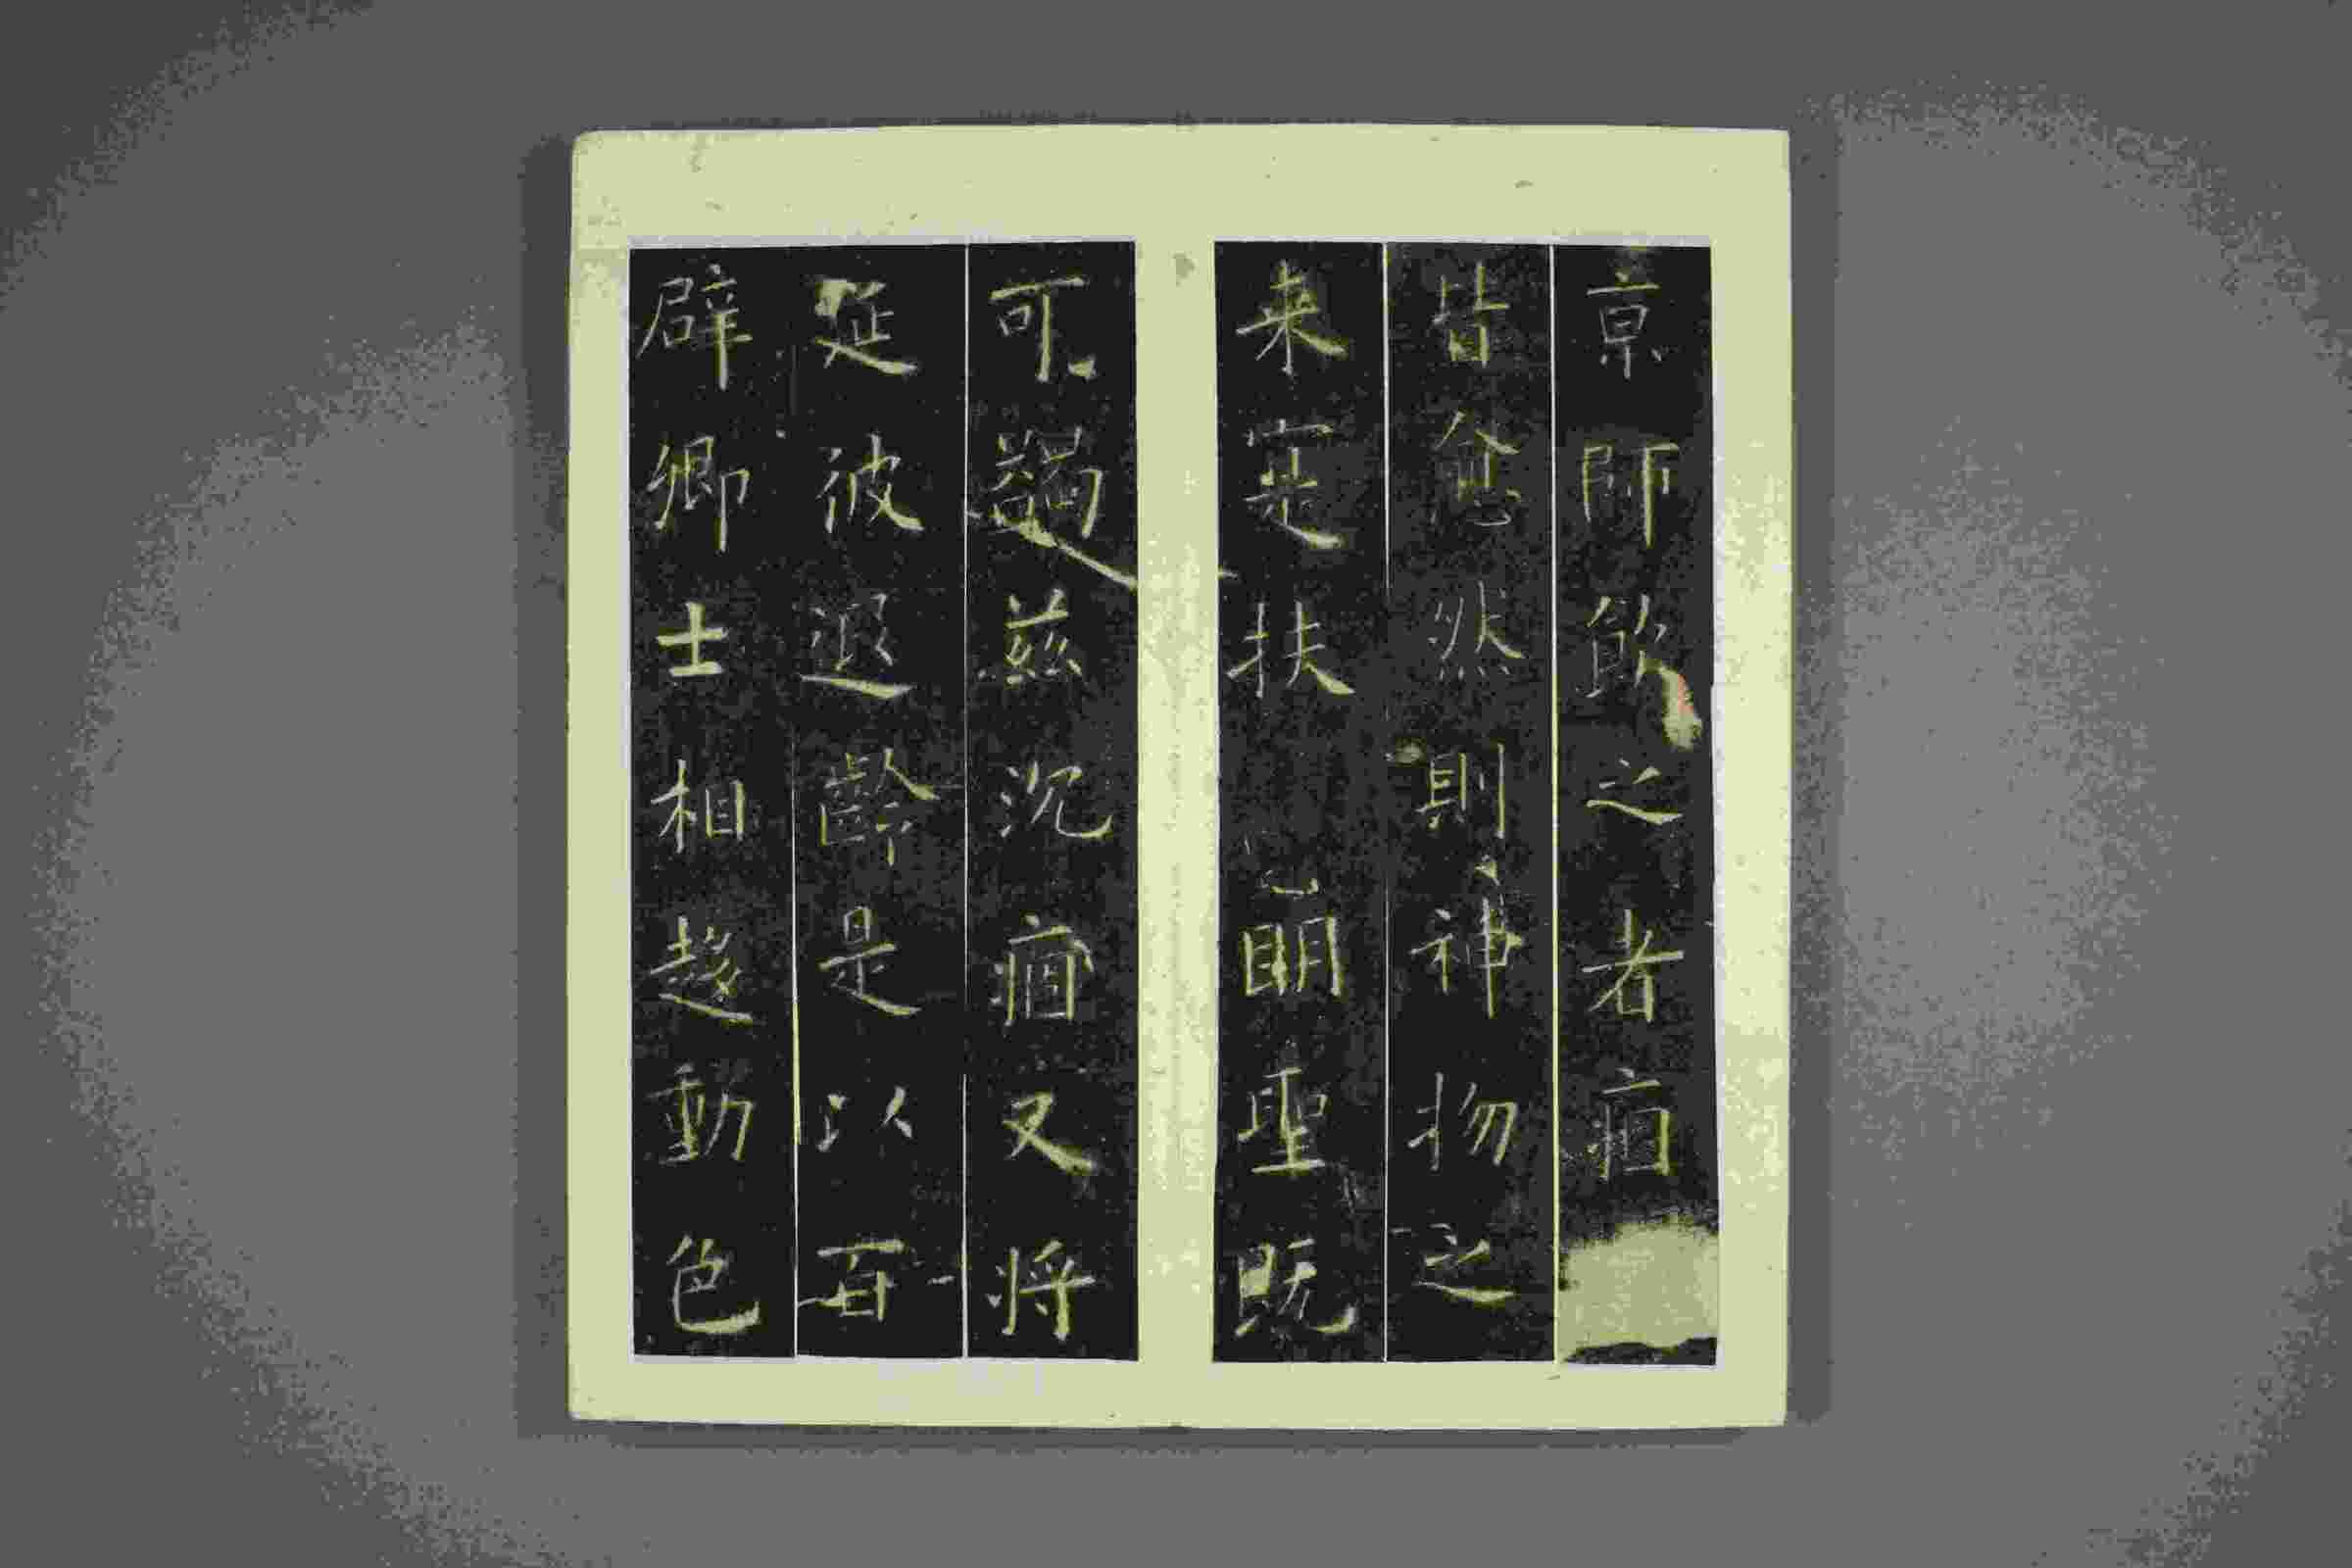 京師飲之者痼
皆愈然則神物之
来寔扶明聖既
可蠲兹沉痼又將
延彼遐齡是以百
辟卿士相趍動色